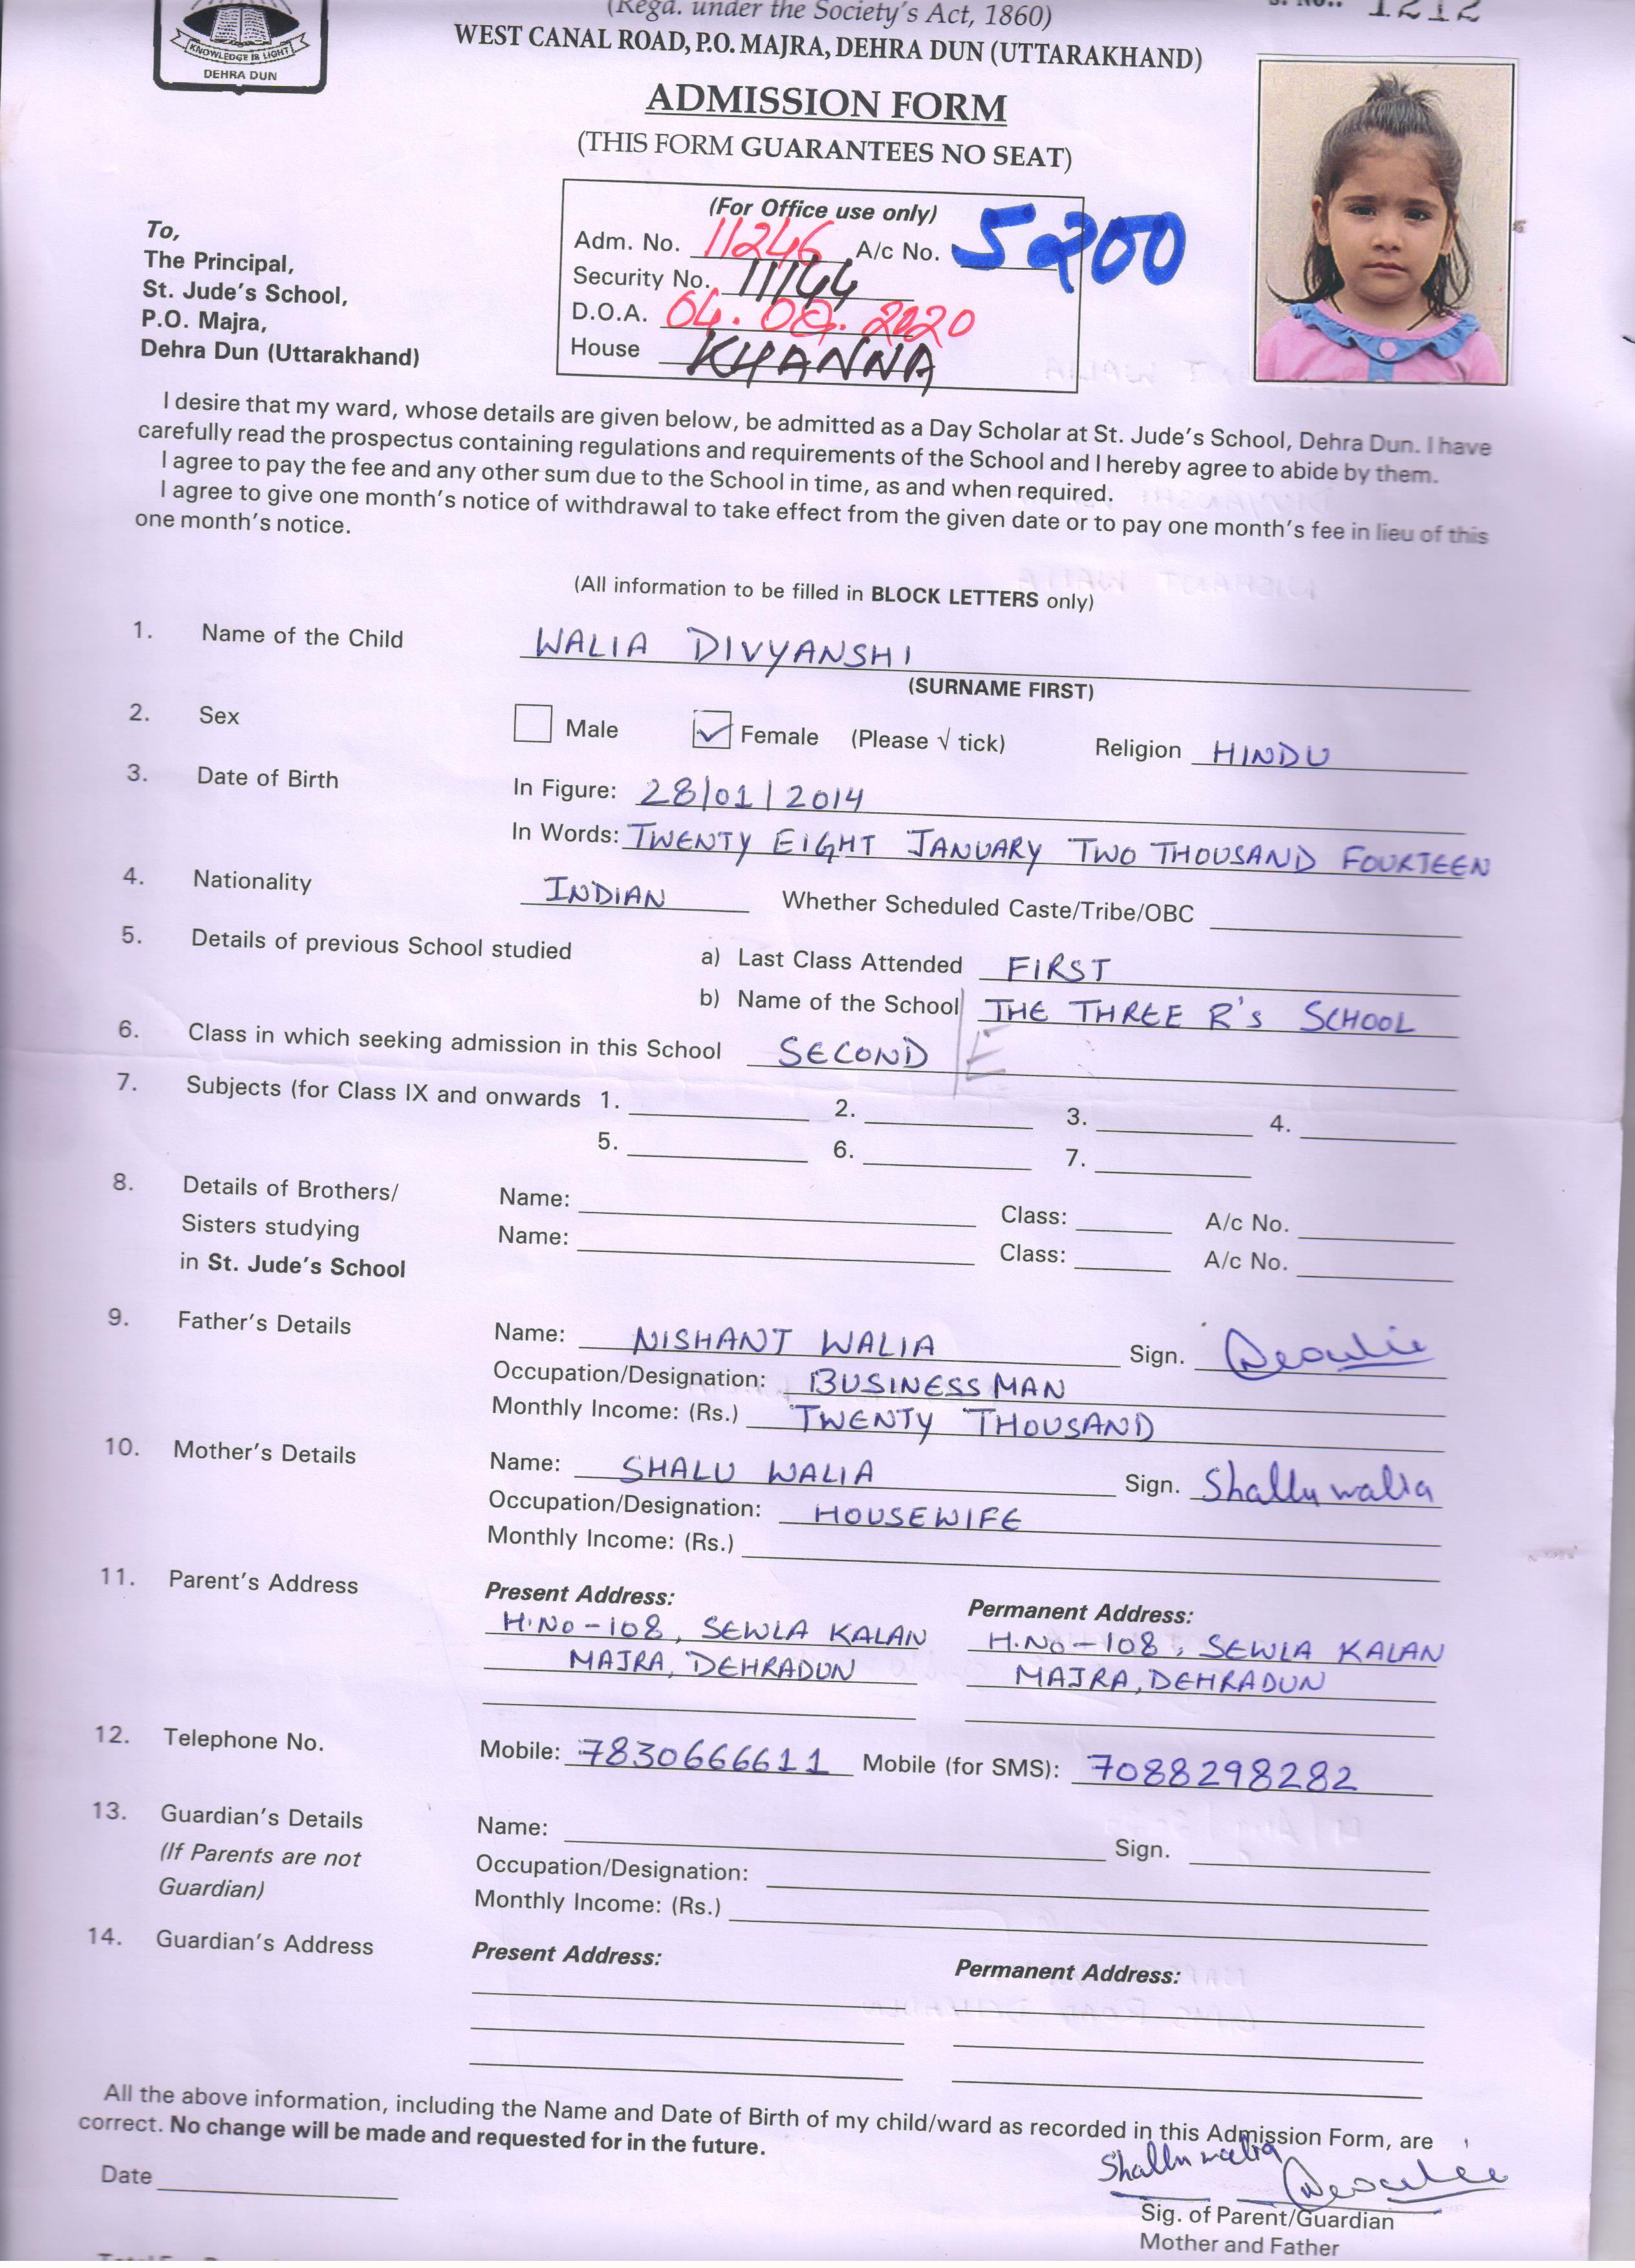 (Regd. under the Society's Act, 1860)
S. No.. 1212
WEST CANAL ROAD, P.O. MAJRA, DEHRA DUN (UTTARAKHAND)
KNOWLEDGE IS LIGHT
DEHRA DUN
ADMISSION FORM
(THIS FORM GUARANTEES NO SEAT)
To,
The Principal,
St. Jude's School,
P.O. Majra,
Dehra Dun (Uttarakhand)
(For Office use only)
Adm. No. 11246 A/c No. 5200
Security No. 11144
D.O.A. 04. 08. 2020
House KHANNA
I desire that my ward, whose details are given below, be admitted as a Day Scholar at St. Jude's School, Dehra Dun. I have
carefully read the prospectus containing regulations and requirements of the School and I hereby agree to abide by them.
I agree to pay the fee and any other sum due to the School in time, as and when required.
I agree to give one month's notice of withdrawal to take effect from the given date or to pay one month's fee in lieu of this
one month's notice.
(All information to be filled in BLOCK LETTERS only)
1. Name of the Child WALIA DIVYANSHI
(SURNAME FIRST)
2. Sex Male Female (Please √ tick) Religion HINDU
3. Date of Birth In Figure: 28/01/2014
In Words: TWENTY EIGHT JANUARY TWO THOUSAND FOURTEEN
4. Nationality INDIAN Whether Scheduled Caste/Tribe/OBC
5. Details of previous School studied a) Last Class Attended FIRST
b) Name of the School THE THREE R's SCHOOL
6. Class in which seeking admission in this School SECOND E
7. Subjects (for Class IX and onwards 1. 2. 3. 4.
5. 6. 7.
8. Details of Brothers/ Name: Class: A/c No.
Sisters studying Name: Class: A/c No.
in St. Jude's School
9. Father's Details Name: NISHANT WALIA Sign.
Occupation/Designation: BUSINESSMAN
Monthly Income: (Rs.) TWENTY THOUSAND
10. Mother's Details Name: SHALU WALIA Sign. Shallu walia
Occupation/Designation: HOUSEWIFE
Monthly Income: (Rs.)
11. Parent's Address Present Address: Permanent Address:
H.No-108, SEWLA KALAN H.No-108, SEWLA KALAN
MAJRA, DEHRADUN MAJRA, DEHRADUN
12. Telephone No. Mobile: 7830666611 Mobile (for SMS): 7088298282
13. Guardian's Details Name: Sign.
(If Parents are not Occupation/Designation:
Guardian) Monthly Income: (Rs.)
14. Guardian's Address Present Address: Permanent Address:
All the above information, including the Name and Date of Birth of my child/ward as recorded in this Admission Form, are
correct. No change will be made and requested for in the future.
Shallu walia
Date
Sig. of Parent/Guardian
Mother and Father